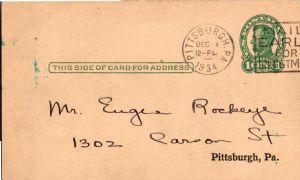 PITTSBURGH, PA.
DEC 1
12-PM
1934
MAIL
EARLY
FOR
CHRISTMAS
THIS SIDE OF CARD FOR ADDRESS
Mr. Eugene Rockeye
1302 Carson St
Pittsburgh, Pa.